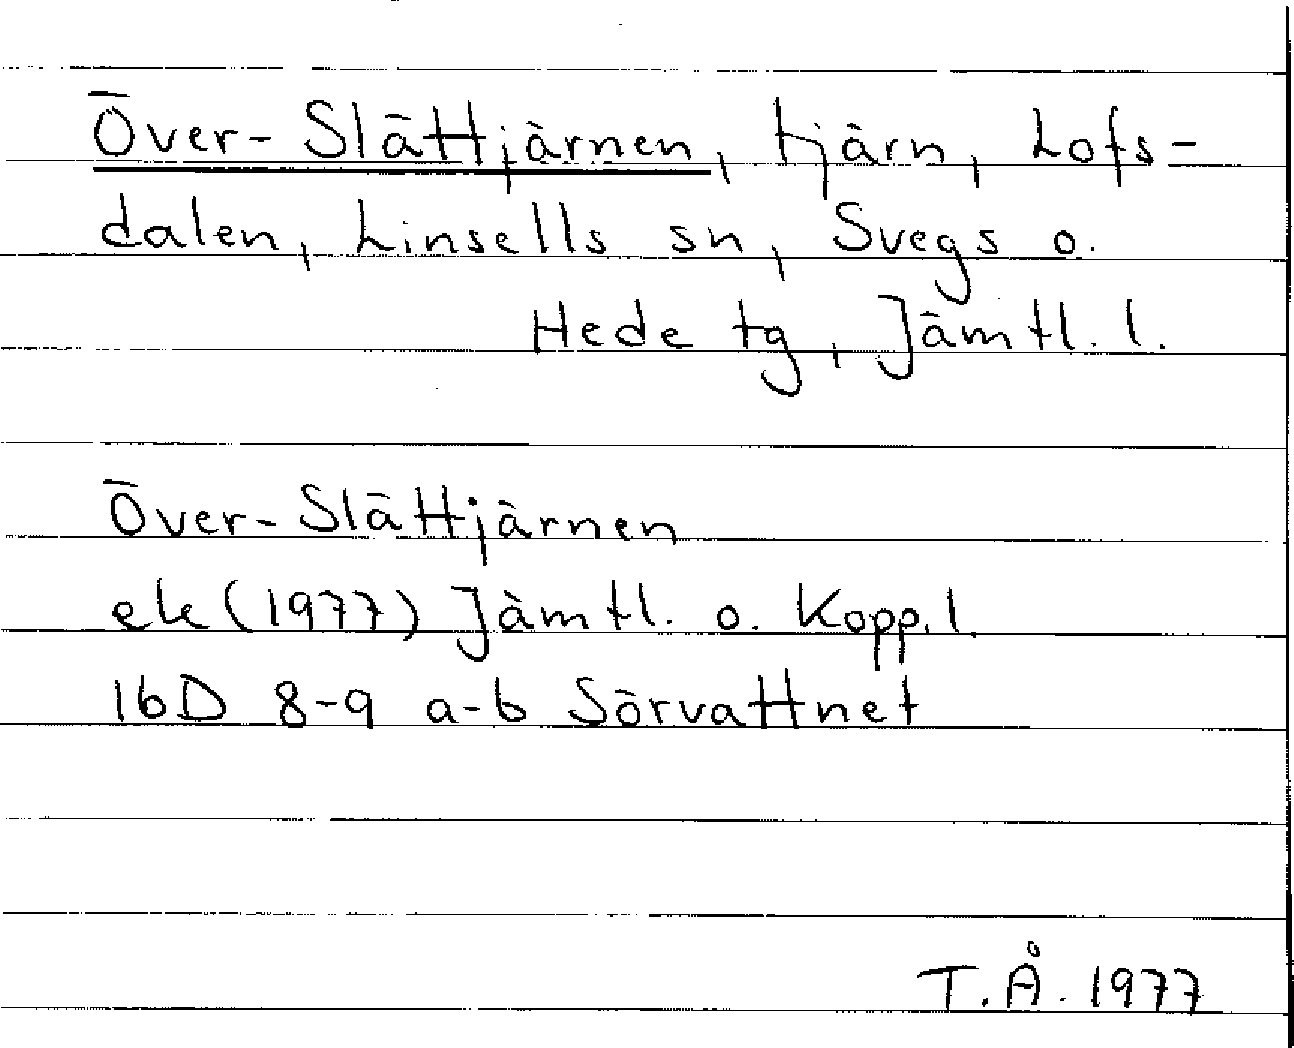 Över-Slättjärnen, tjärn, Lofs-
dalen, Linsells sn, Svegs o.
Hede tg, Jämtl. l.
Över-Slättjärnen
ek (1977) Jämtl. o. Kopp. l.
16D 8-9 a-b Sörvattnet
T.Å. 1977